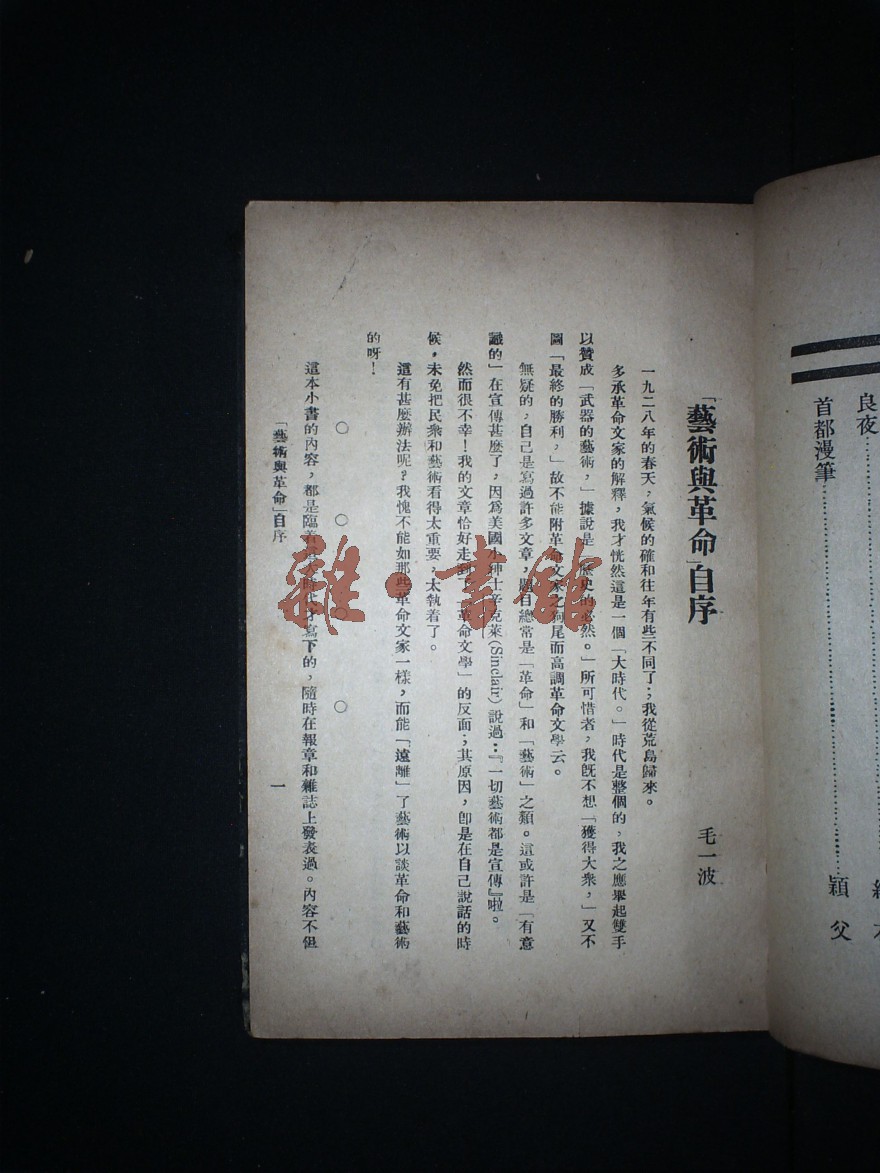 良夜
首都漫筆
穎父
「藝術與革命」自序
毛一波
一九二八年的春天，氣候的確和往年有些不同了；我從荒島歸來。
多承革命文家的解釋，我才恍然這是一個「大時代。」時代是整個的，我之應舉起雙手
以贊成「武器的藝術，」據說是「歷史的必然。」所可惜者，我既不想「獲得大衆，」又不
圖「最終的勝利，」故不能附革命文家之狗尾而高調革命文學云。
無疑的，自己是寫過許多文章，題目總常是「革命」和「藝術」之類。這或許是「有意
識的」在宣傳甚麼了，因爲美國小紳士辛克萊(Sinclair)說過：『一切藝術都是宣傳』啦。
然而很不幸！我的文章恰好走到了「革命文學」的反面；其原因，卽是在自己說話的時
候，未免把民衆和藝術看得太重要，太執着了。
這有甚麼辦法呢？我愧不能如那些革命文家一樣，而能「遠離」了藝術以談革命和藝術
的呀！
○ ○ ○ ○
這本小書的內容，都是臨着這大時代才寫下的，隨時在報章和雜誌上發表過。內容不但
「藝術與革命」自序
一
雜·書館